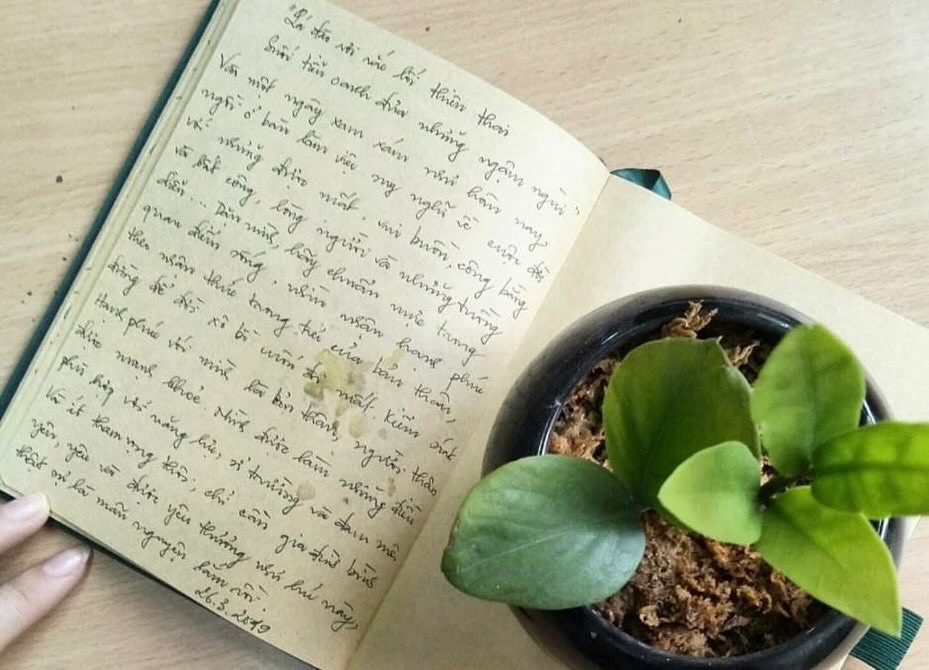 "Lá đào rơi rắc lối thiên thai
Suối tiễn oanh đưa những ngậm ngùi"
Vào một ngày xam xám như hôm nay
ngồi ở bàn làm việc nghĩ về cuộc đời
về những được mất, vui buồn, công bằng
và bất công, lòng người và những
điều... Dặn mình, hãy chuẩn mực trong
quan điểm sống, nhìn nhận hạnh phúc
theo nhận thức trong trẻo của bản thân,
đừng để đời xô bồ cuốn đi mất.
Hạnh phúc với mình là bản thân, người thân
được mạnh khoẻ. Mình được làm những điều
phù hợp với năng lực, sở trường và đam mê
Và ít tham vọng thôi, chỉ cần gia đình bình
yên, yêu và được yêu thương như lúc này,
thật sự là mãn nguyện lắm rồi.
26.3.2019